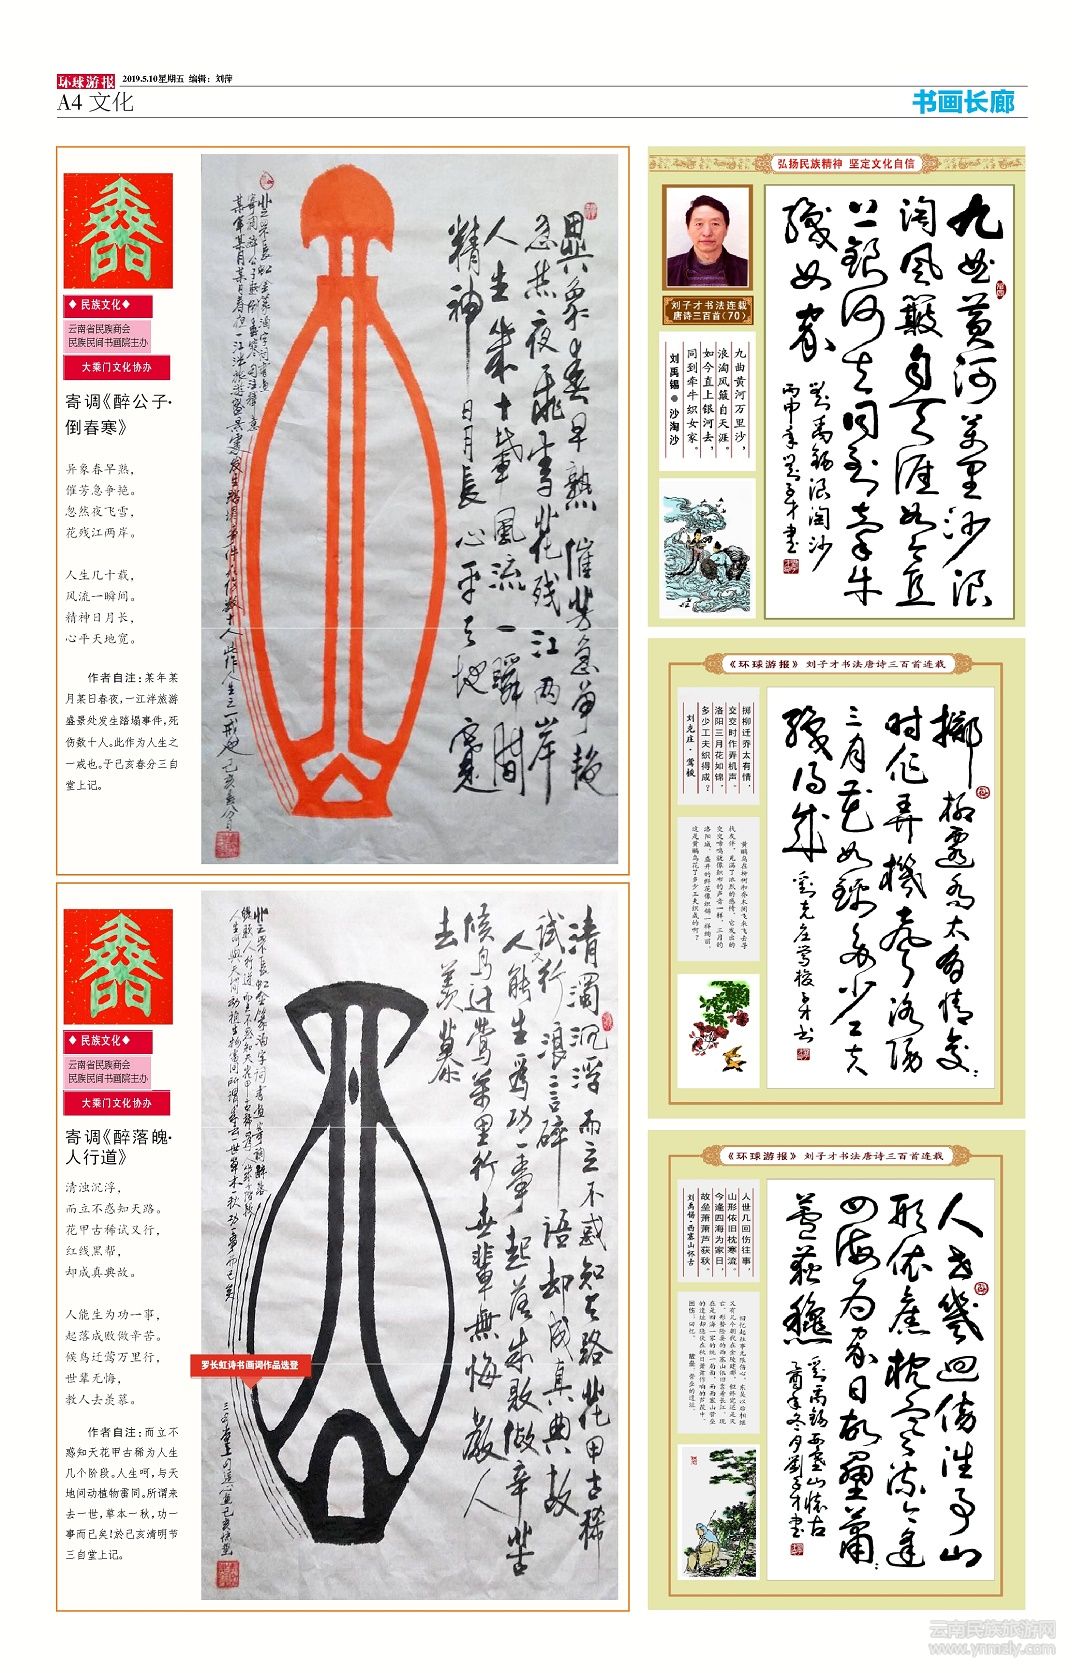 环球游报
2019.5.10星期五 编辑：刘萍
A4 文化
书画长廊
◆ 民族文化◆
云南省民族商会
民族民间书画院主办
大乘门文化协办
寄调《醉公子·
倒春寒》
异象春早熟，
催芳急争艳。
忽然夜飞雪，
花残江两岸。
人生几十载，
风流一瞬间。
精神日月长，
心平天地宽。
作者自注：某年某
月某日春夜，一江泮旅游
盛景处发生踏塌事件，死
伤数十人。此作为人生之
一戒也。于己亥春分三自
堂上记。
異象春早熟 催芳急争艳
忽然夜飛雪花残江两岸
人生几十載風流一瞬間
精神日月長心平天地寬
◆ 民族文化◆
云南省民族商会
民族民间书画院主办
大乘门文化协办
寄调《醉落魄·
人行道》
清浊沉浮，
而立不惑知天路。
花甲古稀试又行，
红线黑帮，
却成真典故。
人能生为功一事，
起落成败做辛苦。
候鸟迁莺万里行，
世辈无悔，
教人去羡慕。
作者自注：而立不
惑知天花甲古稀为人生
几个阶段。人生呵，与天
地间动植物雷同。所谓来
去一世，草本一秋，功一
事而已矣！於己亥清明节
三自堂上记。
罗长虹诗书画词作品选登
弘扬民族精神 坚定文化自信
刘子才书法连载
唐诗三百首（70）
九曲黄河万里沙，
浪淘风簸自天涯。
如今直上银河去，
同到牵牛织女家。
刘禹锡●沙淘沙
九曲黄河万里沙浪
淘风簸自天涯如今直
上银河去同到牵牛
織女家
劉禹錫浪淘沙
丙申年劉子才書
《环球游报》 刘子才书法唐诗三百首连载
掷柳迁乔太有情，
交交时作弄机声。
洛阳三月花如锦，
多少工夫织得成？
刘克庄·莺梭
黄鹂鸟在柳树和乔木间飞来飞去寻
找友伴，充满了浓烈的感情，它发出的
交交啼鸣就像织布的声音一样。三月的
洛阳城，盛开的鲜花像织锦一样绚丽，
这是黄鹂鸟花了多少工夫织成的啊？
擲柳遷喬太有情交
时作弄機声洛陽
三月花如錦多少工夫
織得成
劉克庄莺梭子才书
《环球游报》 刘子才书法唐诗三百首连载
人世几回伤往事，
山形依旧枕寒流。
今逢四海为家日，
故垒萧萧芦荻秋。
刘禹锡·西塞山怀古
人世幾回傷往事山
形依舊枕寒流今逢
四海为家日故壘蕭
蘆荻秋
劉禹錫西塞山懷古
云南民族旅游网
www.ynmzly.com